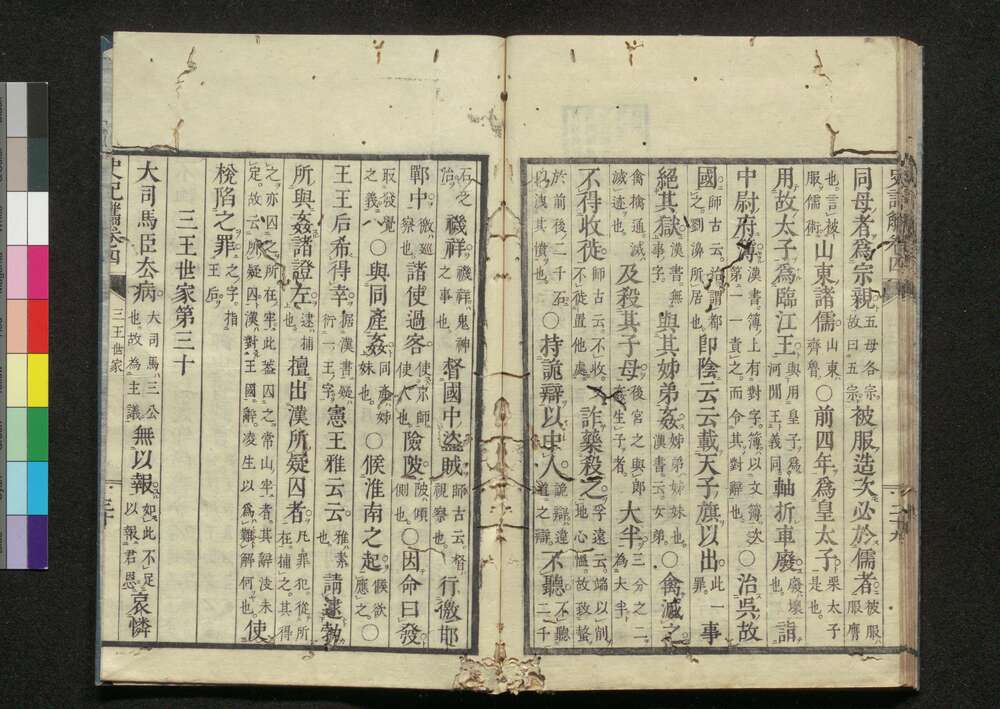 史記觿卷四
同母者為宗親五母各宗故曰五宗被服造次必於儒者被服服膺
也言被服儒術山東諸儒山東齊魯○前四年為皇太子栗太子是也
用故太子為臨江王與用皇子為河間王義同軸折車廢廢壞也詣
中尉府簿漢書簿上有對字簿以文簿次第一一責之而令其對辭也○治吳故
國師古云治謂都之劉濞所居也即陰云云載天子旗以出此一事罪
絕其獄漢書無事字與其姊弟姦姊弟姊妹也漢書云女弟○禽滅之
禽擒通滅滅迹也及殺其子母後宮之與郎姦生子者大半三分之二為大半
不得收徙師古云不收不徙置他處詐藥殺之孚遠云端以削地心慍故致
於前後二千石以洩其憤也○持詭辯以中人詭辯違道之辯不聽不聽二千
二十九
石之治磯祥磯祥鬼神之事也督國中盜賊師古云督視察也行徼邯
鄲中徼巡察也諸使過客使京師使人也險陂陂傾側也○因命曰發
取發覺之義○與同產姦同產姊妹也○候淮南之起候欲應之○
王王后希得幸据漢書疑衍一王字憲王雅云云雅素也請逮勃
所與姦諸證左逮捕也擅出漢所疑囚者凡罪犯從所在捕之其得
之亦囚之所在牢此蓋囚之常山牢者其辭泼未定故云所疑囚漢對王國辭凌生以為難解何也使
梲陷之罪之字指王后
三王世家第三十
大司馬臣去病大司馬三公也故為主議無以報如此不足以報君恩哀憐
史記觿卷四 三王世家 三十